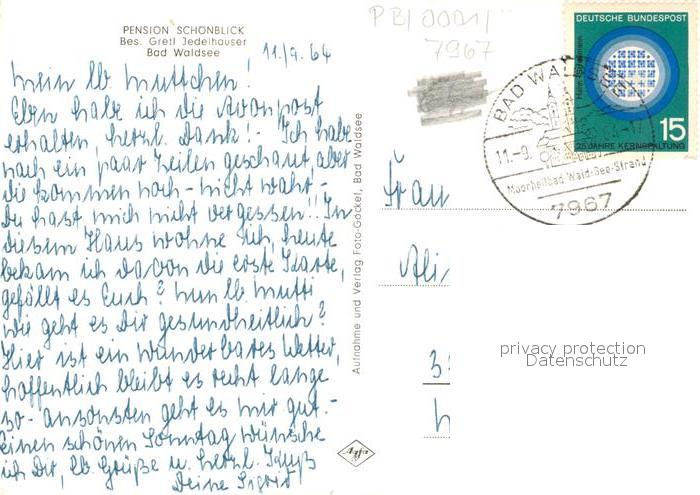 PENSION SCHÖNBLICK
Bes. Gretl Jedelhauser
Bad Waldsee
11./9. 64
Mein lb. Muttchen!
Eben habe ich die Avonpost
erhalten, herzl. Dank! - Ich habe
nach ein paar Zeilen geschaut, aber
die kommen noch - nicht wahr -
Du hast mich nicht vergessen!! In
diesem Haus wohne ich, heute
bekam ich davon die erste Karte,
gefällt es Euch? Nun lb. Mutti
wie geht es Dir gesundheitlich?
Hier ist ein wunderbares Wetter,
hoffentlich bleibt es recht lange
so - ansonsten geht es mir gut. -
Einen schönen Sonntag wünsche
ich Dir, lb. Grüße u. herzl. Kuß
Deine Sigrid
Aufnahme und Verlag Foto-Göckel, Bad Waldsee
Agfa
PB/0001/
7967
DEUTSCHE BUNDESPOST
15
25 JAHRE KERNSPALTUNG
BAD WALDSEE
11.-9.
Moorheilbad Wald-See-Strand
7967
Frau
Ali
3
privacy protection
Datenschutz